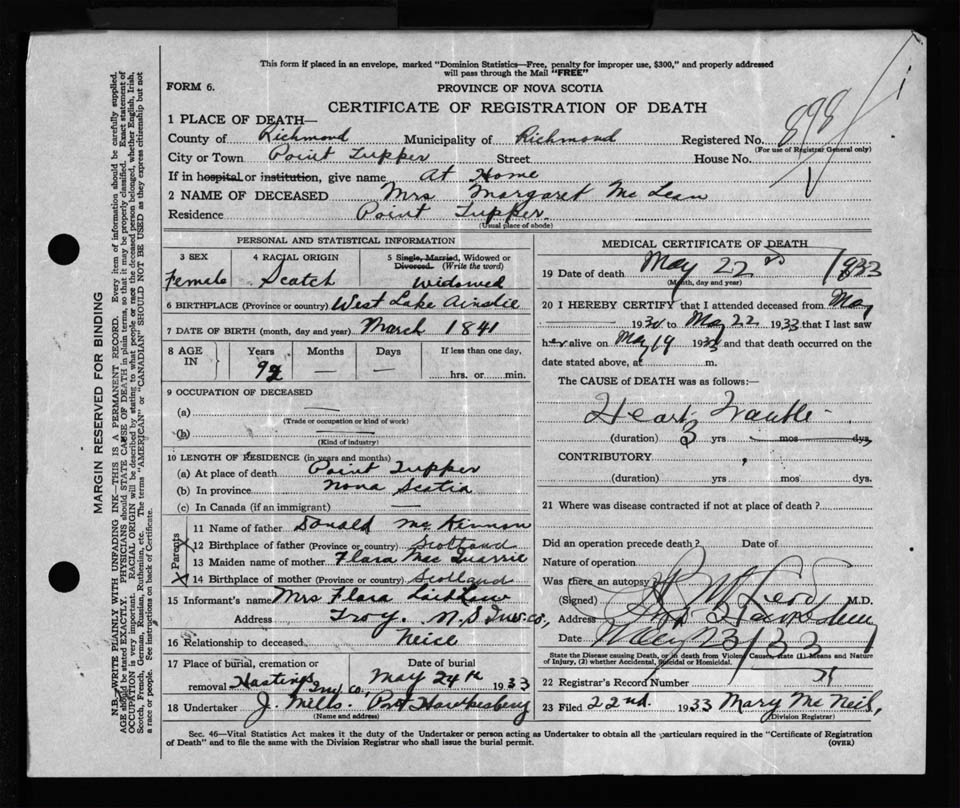 This form if placed in an envelope, marked "Dominion Statistics—Free, penalty for improper use, $300," and properly addressed
will pass through the Mail "FREE"
FORM 6.
PROVINCE OF NOVA SCOTIA
CERTIFICATE OF REGISTRATION OF DEATH
1 PLACE OF DEATH—
County of Richmond Municipality of Richmond Registered No. 898
(For use of Registrar General only)
City or Town Point Tupper Street House No.
If in hospital or institution, give name At Home
2 NAME OF DECEASED Mrs Margaret Mc Lean
Residence Point Tupper.
(Usual place of abode)
PERSONAL AND STATISTICAL INFORMATION
3 SEX 4 RACIAL ORIGIN 5 Single, Married, Widowed or Divorced. (Write the word)
Female Scotch Widowed
6 BIRTHPLACE (Province or country) West Lake Ainslie
7 DATE OF BIRTH (month, day and year) March 1841
8 AGE IN Years Months Days If less than one day,
92 — — hrs. or min.
9 OCCUPATION OF DECEASED
(a) —
(Trade or occupation or kind of work)
(b)
(Kind of industry)
10 LENGTH OF RESIDENCE (in years and months)
(a) At place of death Point Tupper
(b) In province Nova Scotia
(c) In Canada (if an immigrant) —
Parents
11 Name of father Donald McKinnon
12 Birthplace of father (Province or country) Scotland
13 Maiden name of mother Flora Mac Quarrie
14 Birthplace of mother (Province or country) Scotland
15 Informant's name Mrs Flora Laidlaw
Address Troy. N.S Inv. Co.,
16 Relationship to deceased Neice
17 Place of burial, cremation or removal Hastings Inv Co. Date of burial May 24th 1933
18 Undertaker J. Mills. Port Hawkesbury
(Name and address)
MEDICAL CERTIFICATE OF DEATH
19 Date of death May 22nd 1933
(Month, day and year)
20 I HEREBY CERTIFY that I attended deceased from May
193 to May 22 1933 that I last saw
her alive on May 19 1933 and that death occurred on the
date stated above, at m.
The CAUSE OF DEATH was as follows:—
Heart Trouble
(duration) 3 yrs mos dys
CONTRIBUTORY
(duration) yrs. mos. dys.
21 Where was disease contracted if not at place of death?
Did an operation precede death? Date of
Nature of operation
Was there an autopsy?
(Signed) McLeod M.D.
Address
Date May 23/33
State the Disease causing Death, or in death from Violent Causes, state (1) Means and Nature
of Injury, (2) whether Accidental, Suicidal or Homicidal.
22 Registrar's Record Number
23 Filed 22nd. 1933 Mary McNeil,
(Division Registrar)
Sec. 46—Vital Statistics Act makes it the duty of the Undertaker or person acting as Undertaker to obtain all the particulars required in the "Certificate of Registration
of Death" and to file the same with the Division Registrar who shall issue the burial permit.
(OVER)
MARGIN RESERVED FOR BINDING
N.B.—WRITE PLAINLY WITH UNFADING INK—THIS IS A PERMANENT RECORD. Every item of information should be carefully supplied.
AGE should be stated EXACTLY. PHYSICIANS should STATE CAUSE OF DEATH in plain terms, so that it may be properly classified. Exact statement of
OCCUPATION is very important. RACIAL ORIGIN will be described by stating to what people or race the deceased person belonged, whether English, Irish,
Scotch, French, German, Russian, Ruthenian, etc. The terms "AMERICAN" or "CANADIAN" SHOULD NOT BE USED as they express citizenship but not
a race or people. See instructions on back of Certificate.